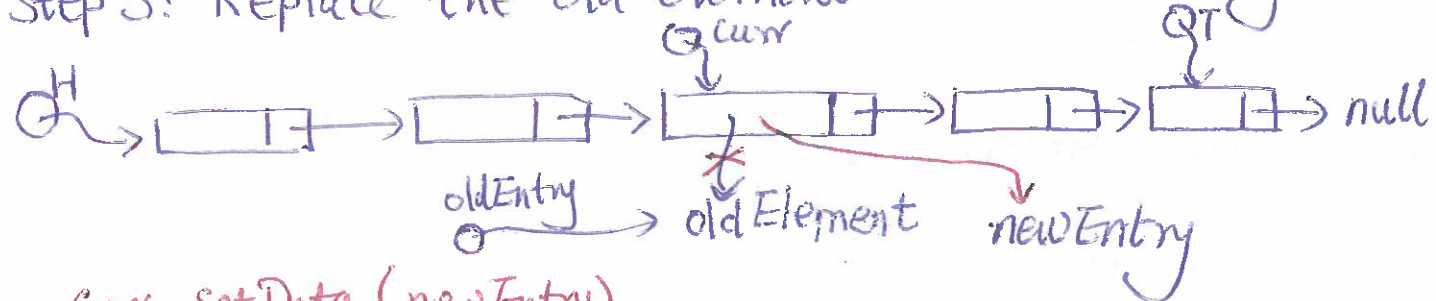 Step 3: Replace the old element
H curr QT
null
oldEntry oldElement newEntry
curr.setData(newEntry)